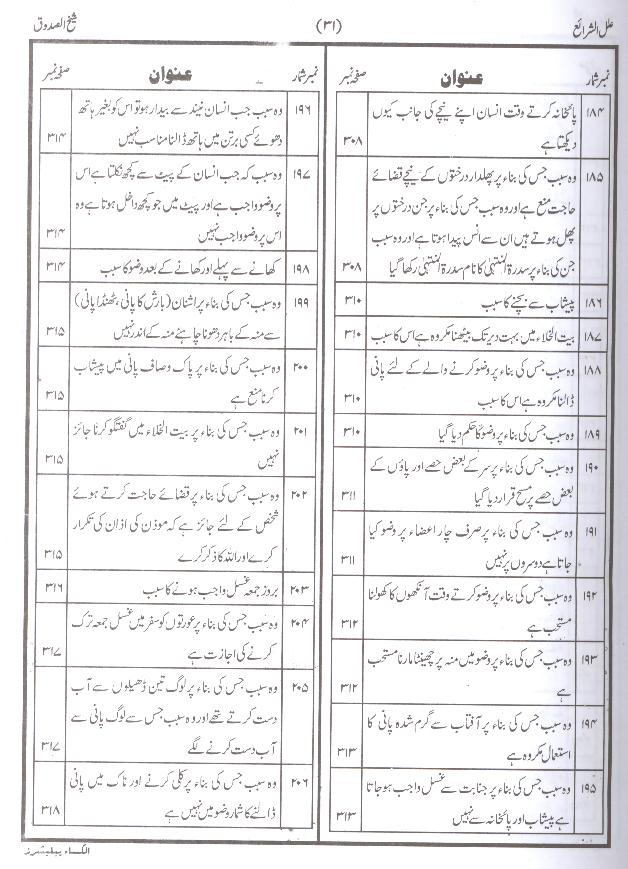 علل الشرائع (۳۱) شیخ الصدوق
نمبر شمار عنوان صفحہ نمبر
۱۸۴ پائخانہ کرتے وقت انسان اپنے نیچے کی جانب کیوں
دیکھتا ہے ۳۰۸
۱۸۵ وہ سبب جس کی بناء پر پھلدار درختوں کے نیچے قضائے
حاجت منع ہے اور وہ سبب جس کی بناء پر جن درختوں پر
پھل ہوتے ہیں ان سے انس پیدا ہوتا ہے اور وہ سبب
جن کی بناء پر سدرۃ المنتہیٰ کا نام سدرۃ المنتہیٰ رکھا گیا ۳۰۸
۱۸۶ پیشاب سے بچنے کا سبب ۳۱۰
۱۸۷ بیت الخلاء میں بہت دیر تک بیٹھنا مکروہ ہے اس کا سبب ۳۱۰
۱۸۸ وہ سبب جس کی بناء پر وضو کرنے والے کے لئے پانی
ڈالنا مکروہ ہے اس کا سبب ۳۱۰
۱۸۹ وہ سبب جس کی بناء پر وضو کا حکم دیا گیا ۳۱۰
۱۹۰ وہ سبب جس کی بناء پر سر کے بعض حصے اور پاؤں کے
بعض حصے پر مسح قرار دیا گیا ۳۱۱
۱۹۱ وہ سبب جس کی بناء پر صرف چار اعضاء پر وضو کیا
جاتا ہے دوسروں پر نہیں ۳۱۱
۱۹۲ وہ سبب جس کی بناء پر وضو کرتے وقت آنکھوں کا کھولنا
مستحب ہے ۳۱۲
۱۹۳ وہ سبب جس کی بناء پر وضو میں منہ پر چھینٹا مارنا مستحب
ہے ۳۱۲
۱۹۴ وہ سبب جس کی بناء پر آفتاب سے گرم شدہ پانی کا
استعمال مکروہ ہے ۳۱۳
۱۹۵ وہ سبب جس کی بناء پر جنابت سے غسل واجب ہو جاتا
ہے پیشاب اور پائخانہ سے نہیں ۳۱۳
نمبر شمار عنوان صفحہ نمبر
۱۹۶ وہ سبب جب انسان نیند سے بیدار ہو تو اس کو بغیر ہاتھ
دھوئے کسی برتن میں ہاتھ ڈالنا مناسب نہیں ۳۱۴
۱۹۷ وہ سبب کہ جب انسان کے پیٹ سے کچھ نکلتا ہے اس
پر وضو واجب ہے اور پیٹ میں جو کچھ داخل ہوتا ہے وہ
اس پر وضو واجب نہیں ۳۱۴
۱۹۸ کھانے سے پہلے اور کھانے کے بعد وضو کا سبب ۳۱۴
۱۹۹ وہ سبب جس کی بناء پر اشنان (بارش کا پانی، ٹھنڈا پانی)
سے منہ کے باہر دھونا چاہئے منہ کے اندر نہیں ۳۱۵
۲۰۰ وہ سبب جس کی بناء پر پاک و صاف پانی میں پیشاب
کرنا منع ہے ۳۱۵
۲۰۱ وہ سبب جس کی بناء پر بیت الخلاء میں گفتگو کرنا جائز
نہیں ۳۱۵
۲۰۲ وہ سبب جس کی بناء پر قضائے حاجت کرتے ہوئے
شخص کے لئے جائز ہے کہ موذن کی اذان کی تکرار
کرے اور اللہ کا ذکر کرے ۳۱۵
۲۰۳ بروز جمعہ غسل واجب ہونے کا سبب ۳۱۶
۲۰۴ وہ سبب جس کی بناء پر عورتوں کو سفر میں غسل جمعہ ترک
کرنے کی اجازت ہے ۳۱۷
۲۰۵ وہ سبب جس کی بناء پر لوگ تین ڈھیلوں سے آب
دست کرتے تھے اور وہ سبب جس سے لوگ پانی سے
آب دست کرنے لگے ۳۱۷
۲۰۶ وہ سبب جس کی بناء پر کلی کرنے اور ناک میں پانی
ڈالنے کا شمار وضو میں نہیں ہے ۳۱۸
الکساء پبلیشرز